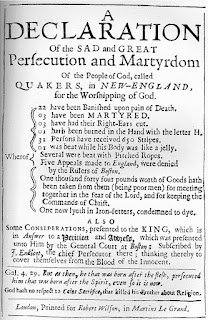 A
DECLARATION
Of the SAD and GREAT
Persecution and Martyrdom
Of the People of God, called
QUAKERS, in NEW-ENGLAND,
for the Worshipping of God.
22 have been Banished upon pain of Death.
03 have been MARTYRED.
03 have had their Right-Ears cut.
01 hath been burned in the Hand with the letter H.
31 Persons have received 650 Stripes.
01 was beat while his Body was like a jelly.
Whereof
Several were beat with Pitched Ropes.
Five Appeals made to England, were denied
by the Rulers of Boston.
One thousand forty four pounds worth of Goods hath
been taken from them (being poor men) for meeting
together in the fear of the Lord, and for keeping the
Commands of Christ.
One now lyeth in Iron-fetters, condemned to dye.
ALSO
Some CONSIDERATIONS, presented to the KING, which is
in Answer to a Petition and Address, which was presented
unto Him by the General Court at Boston: Subscribed by
J. Endicot, the chief Persecutor there; thinking thereby to
cover themselves from the Blood of the Innocent.
Gal. 4. 29. But as then, he that was born after the flesh, persecuted
him that was born after the Spirit, even so it is now.
God hath no respect to Cains Sacrifice, that killed his Brother about Religion.
London, Printed for Robert Wilson, in Martins Le Grand.